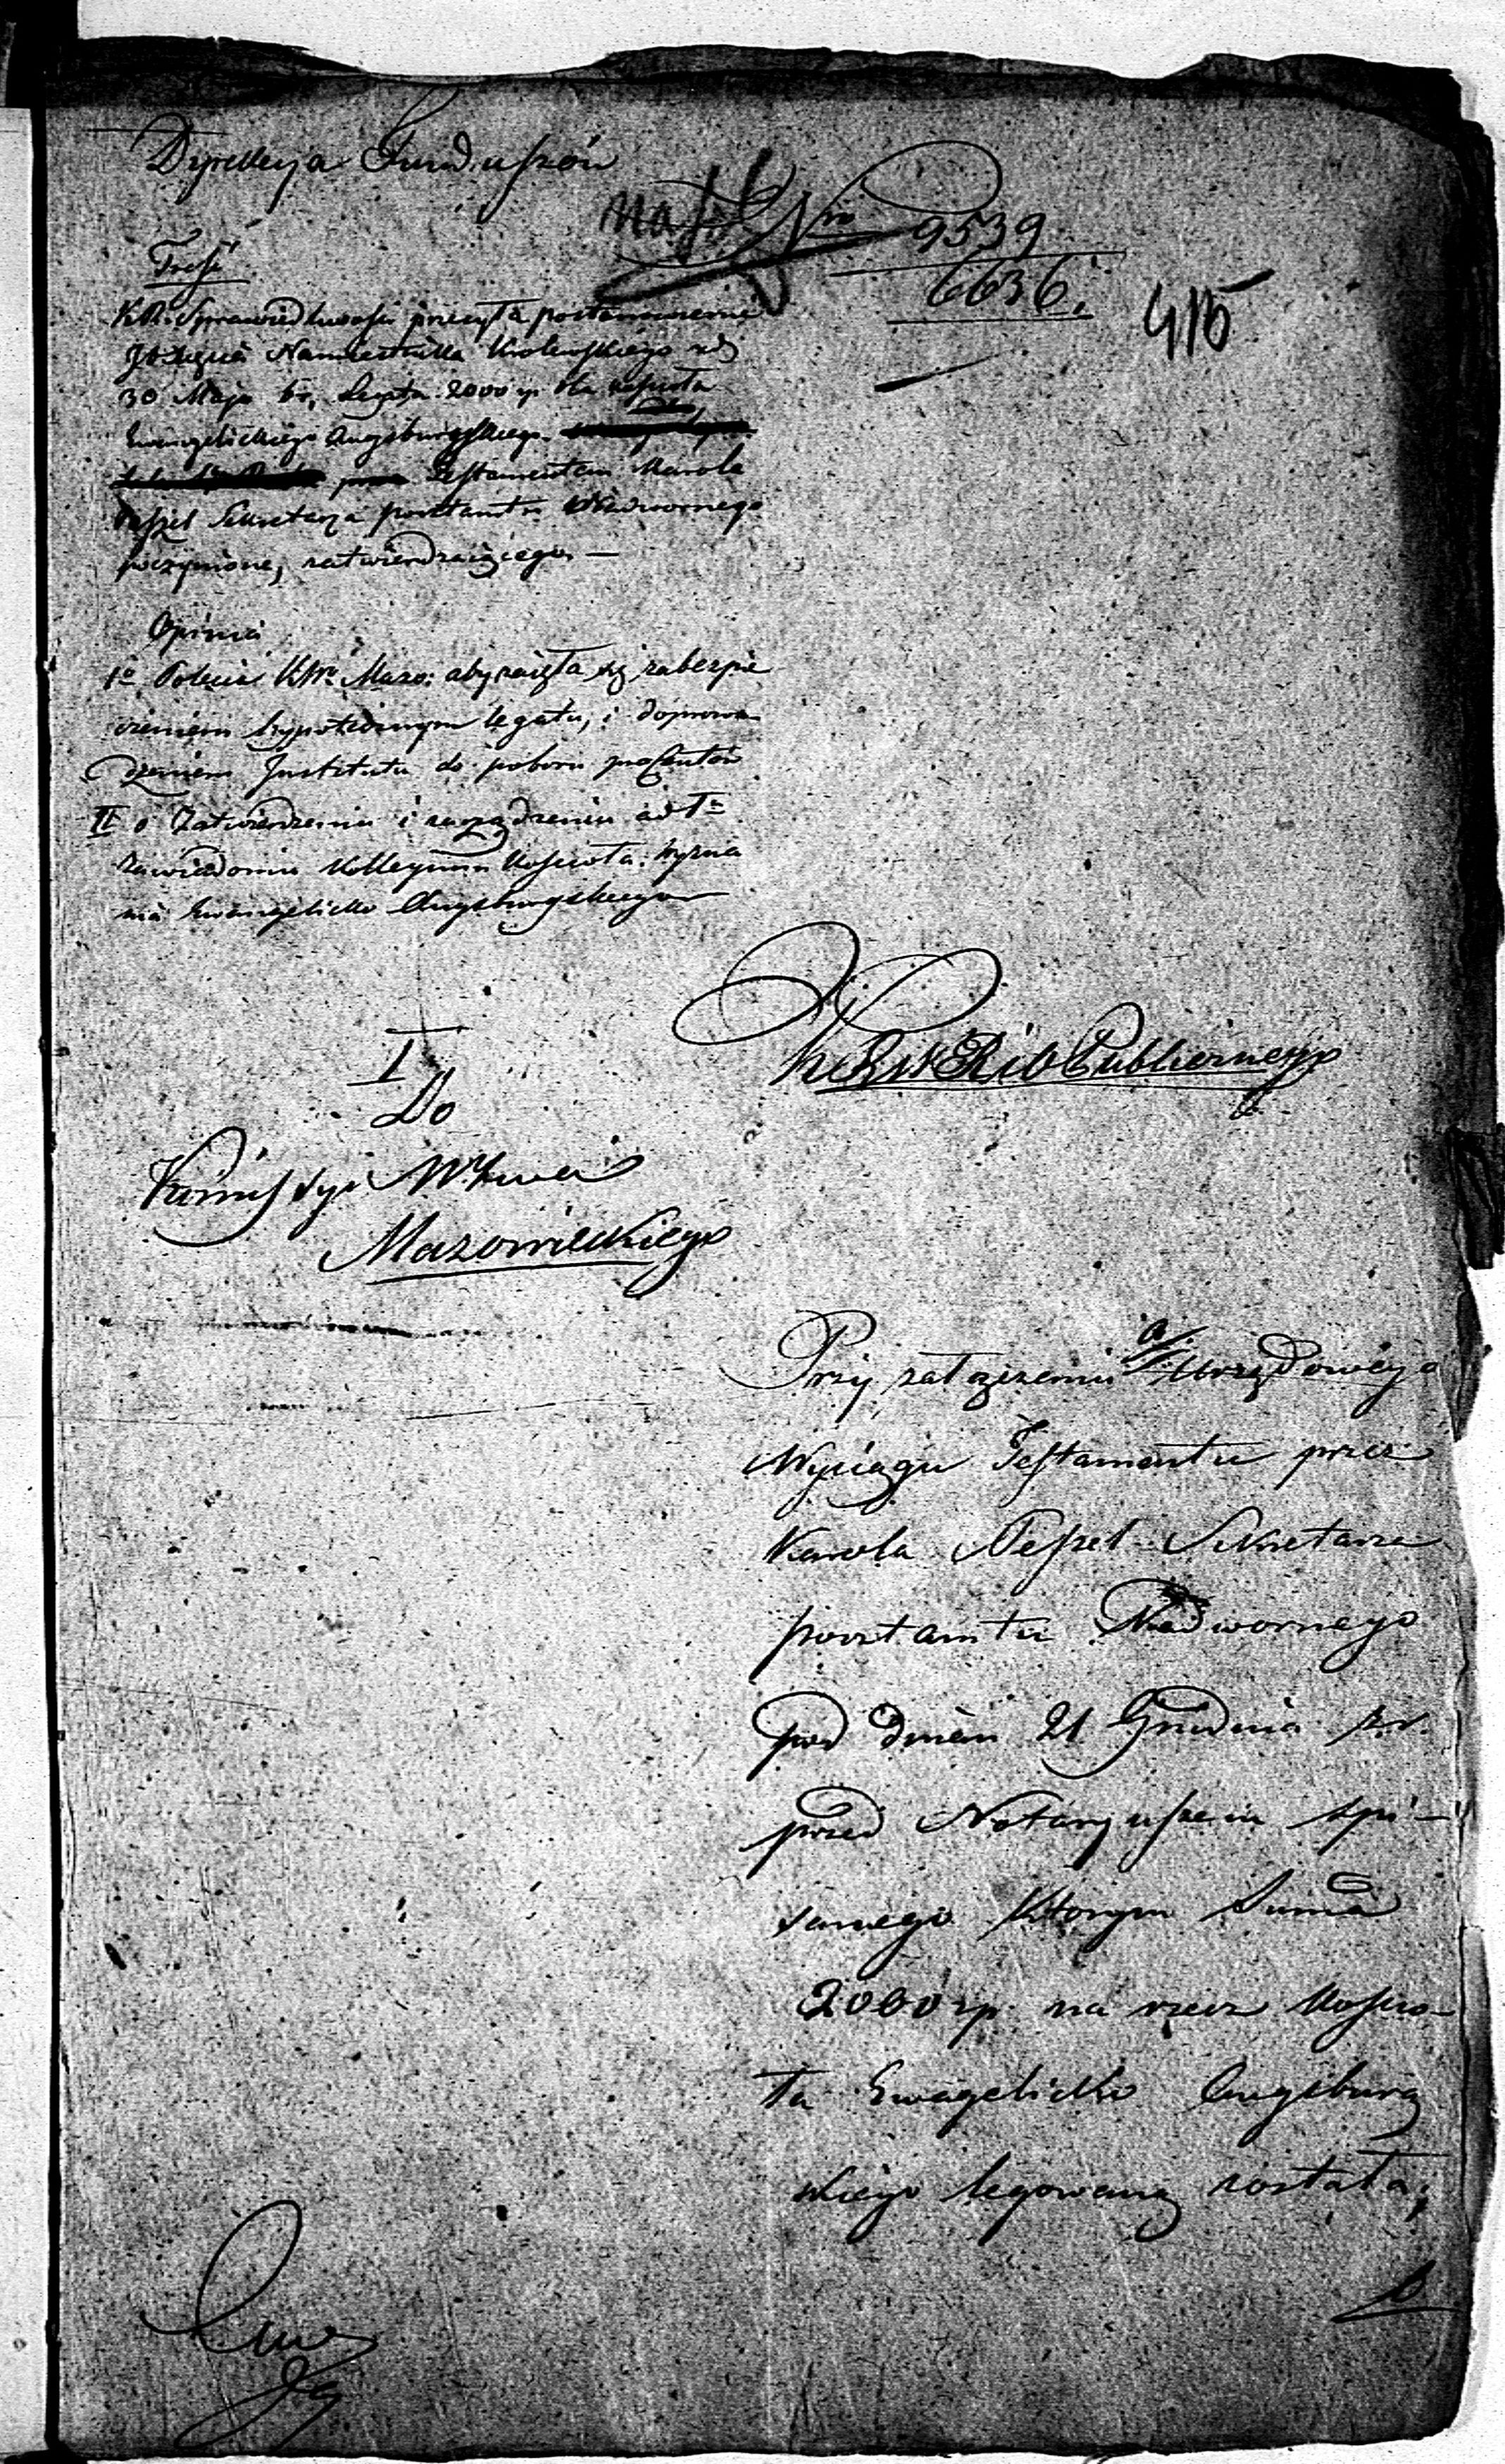 Dyrekcya Funduszów
Nro 9539
6636.
415
Treść
K.R. Sprawiedliwości przesyła postanowienie
Xięcia Namiestnika Krolewskiego z d
30 Maja br, Legata 2000 zp dla kościoła
Ewangelickiego Augsburgskiego
Testamentem Karola
Peszel Sekretarza pocztamtu Nadwornego
poczynione, zatwierdzaiącego —
Opinia
1o Poleca KWa Mazo: aby zaięła się zabezpie
czeniem hypotecznym legatu, i doprowa
dzeniem Instytutu do poboru procentów
II o Zatwierdzeniu i zarządzeniu ad 1m
zawiadomia Kollegium Kościoła Wyzna
nia Ewangelicko Augsburgskiego
I
Do
Kommissyi Wztwa
Mazowieckiego
Publicznego
Przy załączeniu a/. Urzędowego
Wyciągu Testamentu przez
Karola Peszel Sekretarza
pocztamtu Nadwornego
pod dniem 21 Grudnia z. r.
przed Notaryuszem spi-
sanego ktorym Summa
2000 zp na rzecz Kościo-
ła Ewagelicko Augsburg
skiego legowaną została,